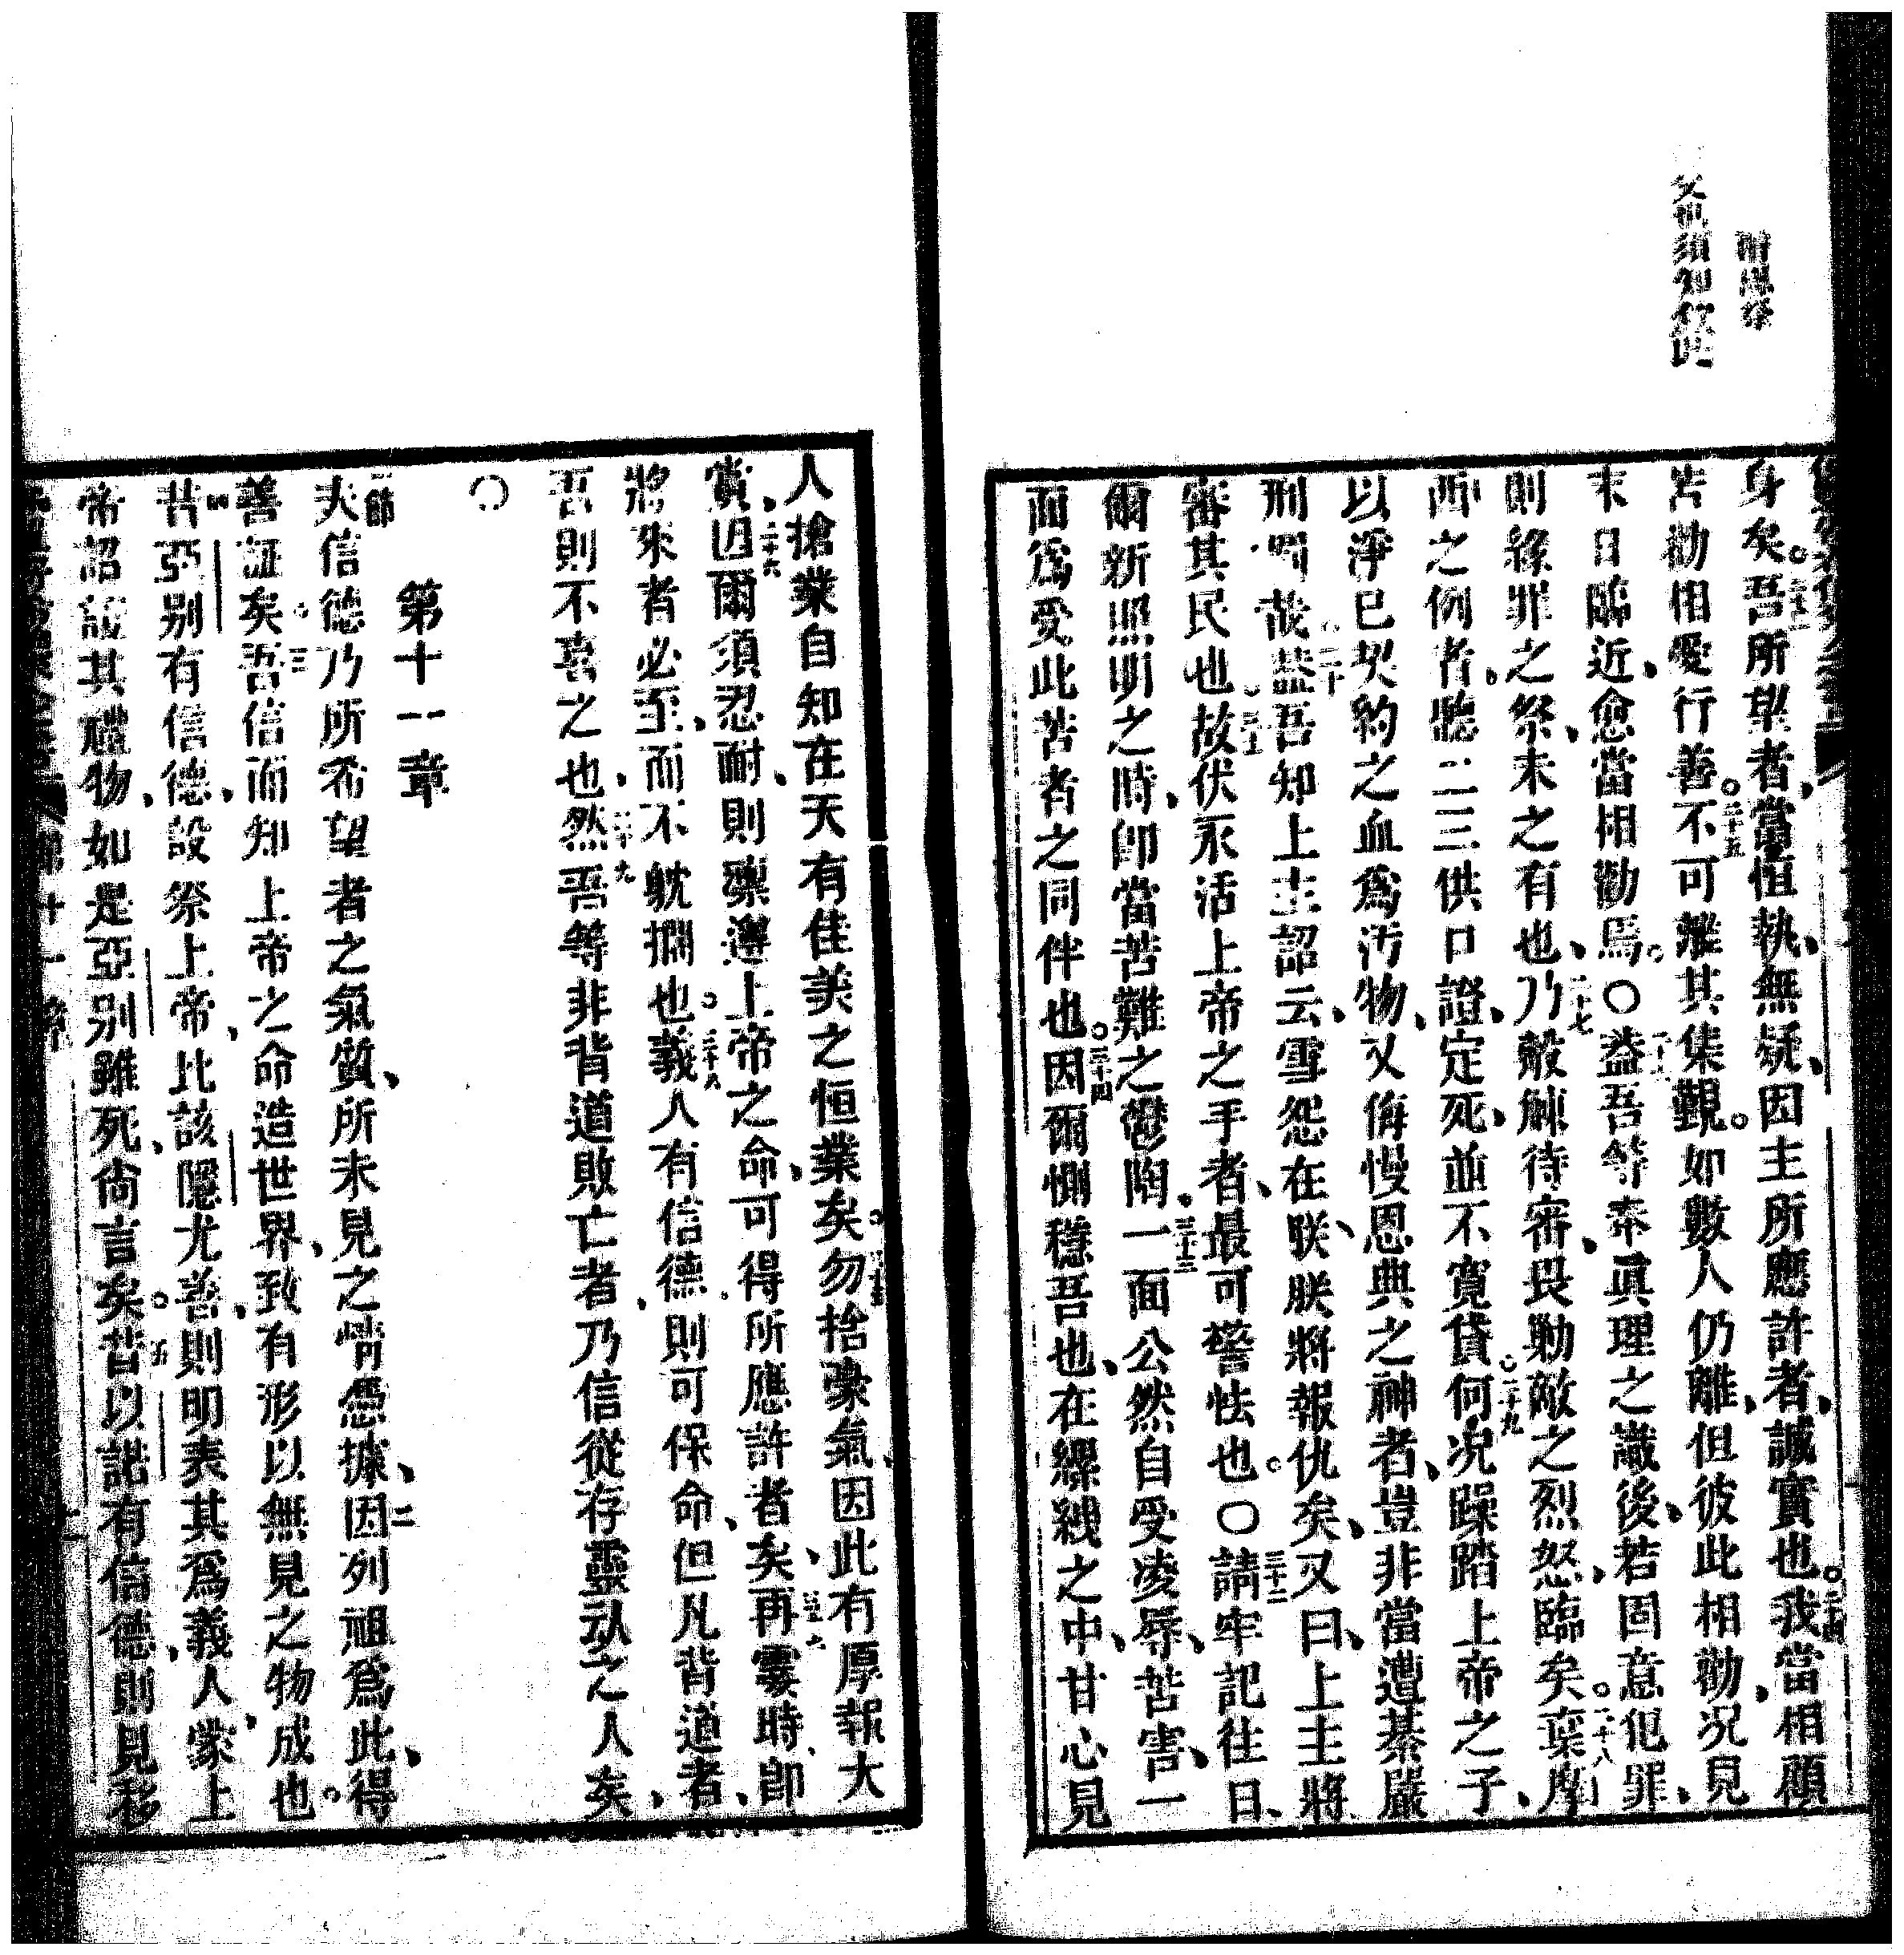 身矣吾所望者當恒執無疑因主所應許者誠實也我當相顧
苦勸相愛行善不可離其集觀如數人仍離但彼此相勸况見
末日臨近愈當相勸焉〇盖吾等奉眞理之識後若固意犯罪
則絲罪之祭未之有也乃觳觫待審畏勦敵之烈怒臨矣棄摩
西之例者聽二三供口證定死並不寛貸何况躁踏上帝之子
以淨已契約之血爲汚物又侮慢恩典之神者豈非當遭綦嚴
刑罰哉盖吾知上主詔云雪怨在朕朕將報仇矣又曰上主將
審其民也故伏永活上帝之手者最可驚怯也〇請牢記往日
爾新照明之時卽當苦難之鬱陶一面公然自受凌辱苦害一
面爲受此苦者之同伴也因爾惻穩吾也在縲綫之中甘心見
人搶業自知在天有佳美之恒業矣勿捨豪氣因此有厚報大
賞因爾須忍耐則禀遵上帝之命可得所應許者矣再霎時卽
將來者必至而不躭擱也義人有信德則可保命但凡背道者
吾則不喜之也然吾等非背道敗亡者乃信從存靈䰟之人矣
〇
第十一章
一節
夫信德乃所希望者之氣質所未見之情憑據因列祖爲此得
善証矣吾信而知上帝之命造世界致有形以無見之物成也
昔亞别有信德設祭上帝比該隱尤善則明表其爲義人蒙上
帝詔設其禮物如是亞别雖死尚言矣昔以諾有信德則見移